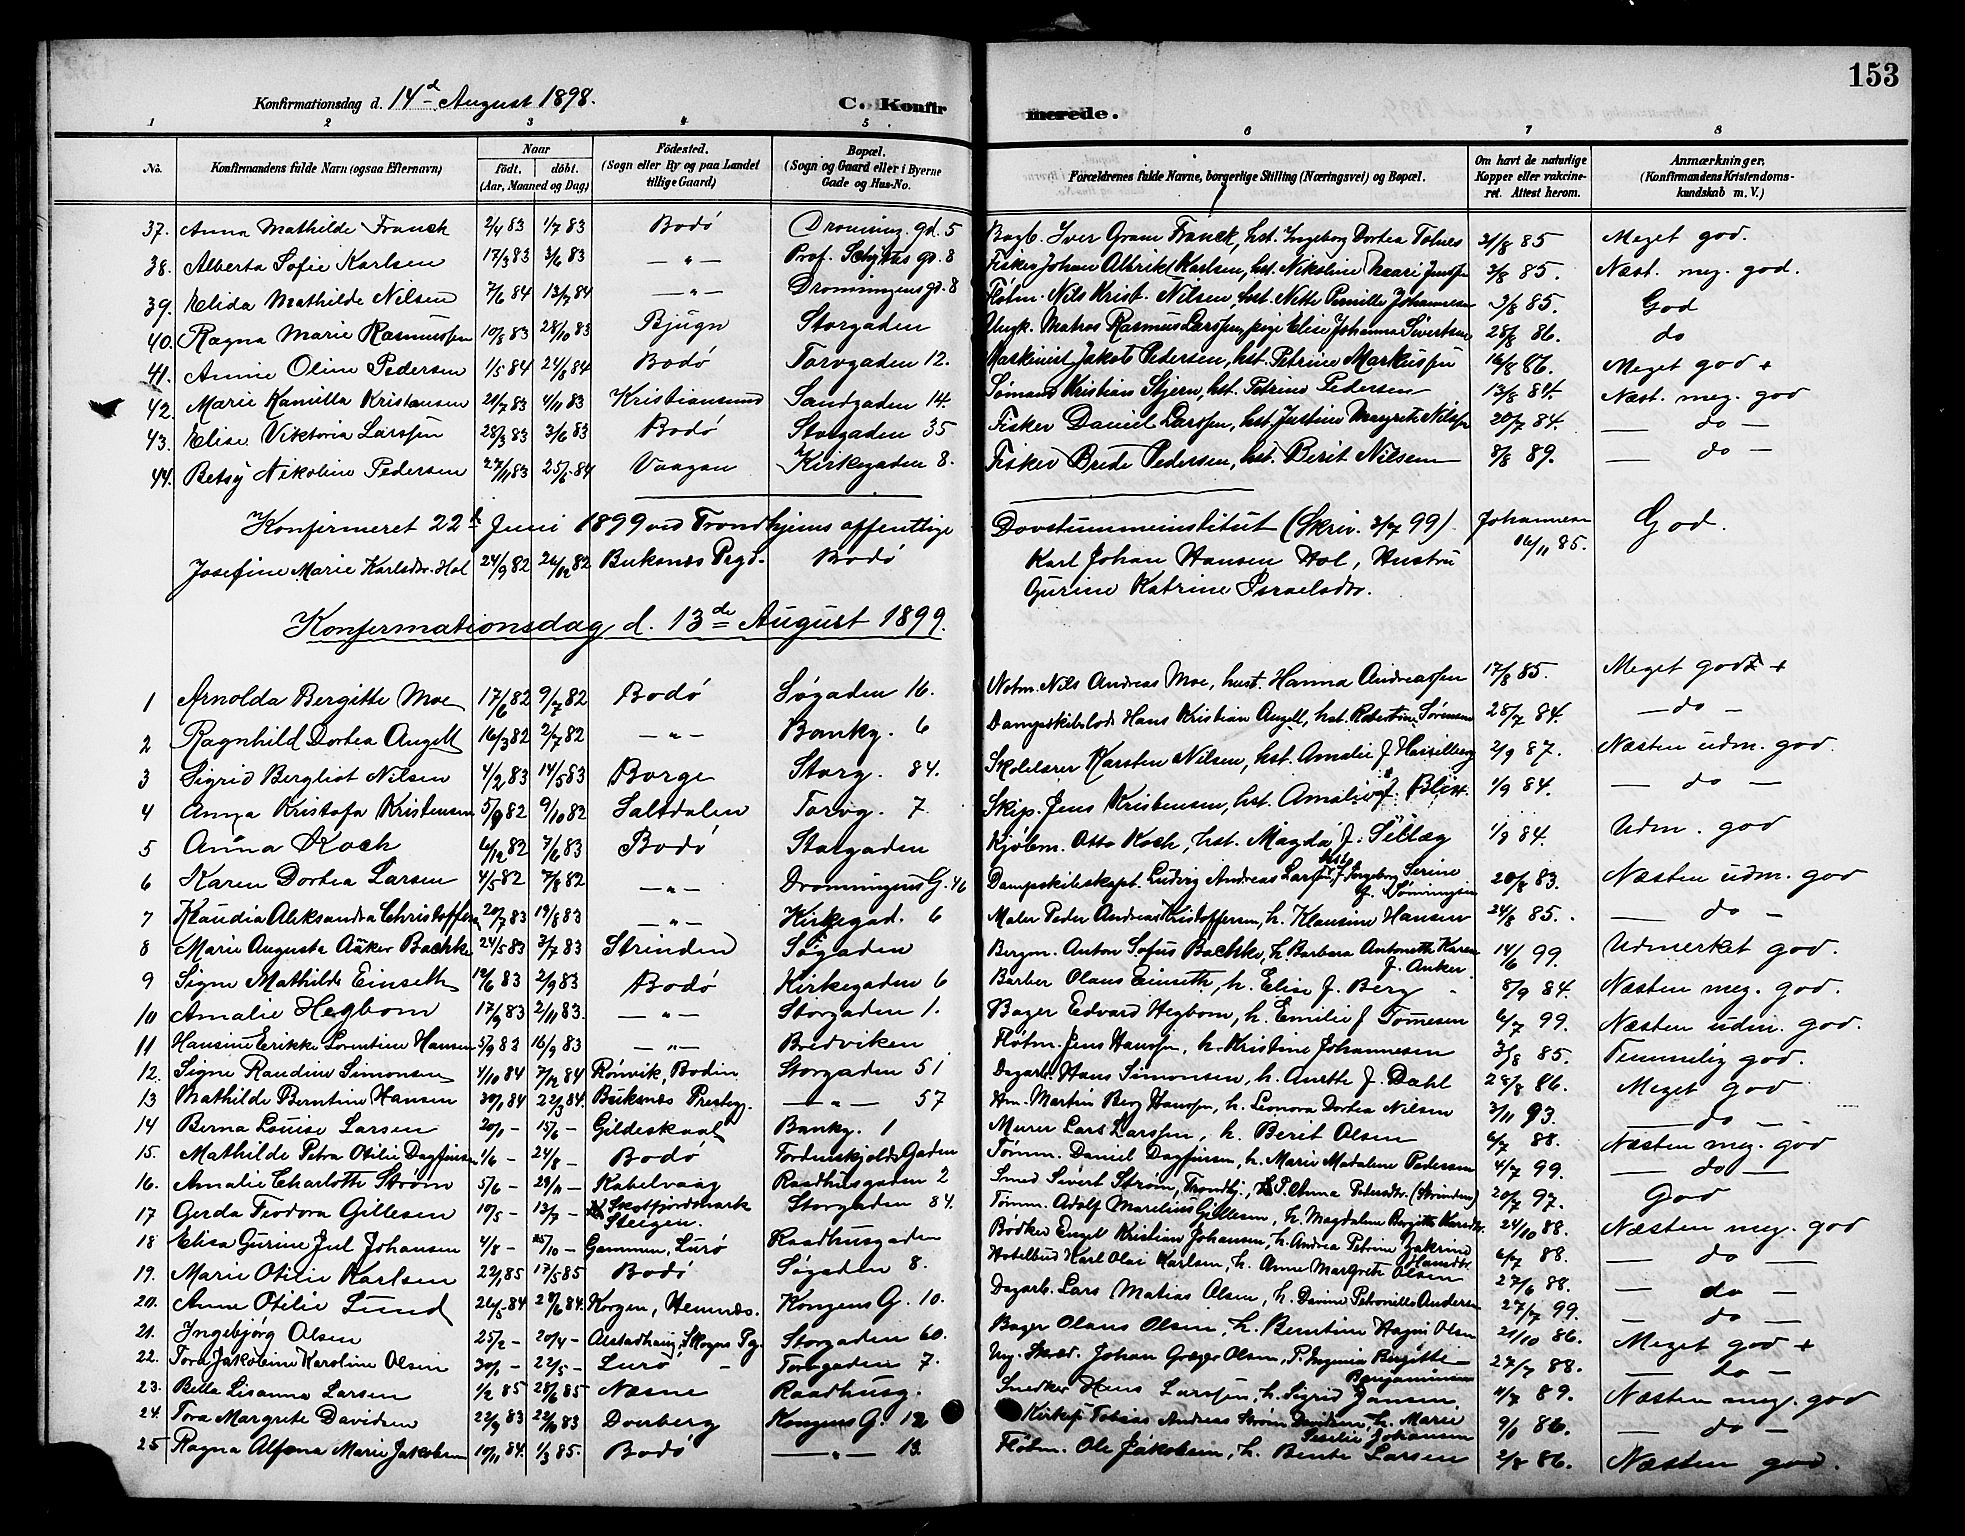 153
Konfirmationsdag d. 14d August 1898. C. Konfirmerede.
1 2 3 4 5 6 7 8
No. Konfirmandens fulde Navn (ogsaa Efternavn) Naar født. døbt. (Aar, Maaned og Dag) Fødested. (Sogn eller By og paa Landet tillige Gaard) Bopæl. (Sogn og Gaard eller i Byerne Gade og Hus-No. Forældrenes fulde Navne, borgerlige Stilling (Næringsvei) og Bopæl. Om havt de naturlige Kopper eller vakcineret. Attest herom. Anmærkninger. (Konfirmandens Kristendomskundskab m. V.)
37. Anna Mathilde Franck 2/4 83 1/7 83 Bodø Dronning. gd. 5 Bagb. Iver Gram Franck, hst. Ingeborg Dortea Tolnes 31/8 85 Meget god.
38. Alberta Sofie Karlsen 17/3 83 3/6 83 — " — Prof. Schyttes gd. 8 Fisker Johan Albrikt Karlsen, hst. Nikoline Kaari Jensen 3/8 85. Næst. meg. god.
39. Elida Mathilde Nilsen 7/6 84 13/7 84 — " — Dronningens gd. 8 Fløtm. Nils Krist. Nilsen, hst. Nette Pernille Johannesen 3/8 85. God
40. Ragna Marie Rasmussen 10/8 83 28/10 83 Bjugn Storgaden Ungk. Matros Rasmus Larssen, pige Elise Johanna Sivertsen 28/8 86. do
41. Annie Oline Pedersen 1/5 84 24/6 84 Bodø Torvgaden 12. Maskinist Jakob Pedersen, hst. Petrine Markussen 16/8 86. Meget god +
42. Marie Kamilla Kristansen 21/7 83 4/11 83 Kristiansund Sandgaden 14. Sømand Kristian Stjern, hst. Petrine Pedersen 13/8 84. Næst. meg. god
43. Elise Viktoria Larssen 28/3 83 3/6 83 Bodø Storgaden 35 Fisker Daniel Larssen, hst. Justine Margrete Nilsen 20/7 84. — do —
44. Betsy Nikoline Pedersen 27/11 83 25/6 84 Vaagan Kirkegaden 8. Fisker Brede Pedersen, hst. Berit Nilsen 8/8 89. — do —
Konfirmeret 22d Juni 1899 ved Trondhjems offentlige Døvstummeinstitut (Skriv. 3/7 99). Johannesen God.
Josefine Marie Karlsdtr. Hol 24/9 82 26/12 82 Buksnes Prgd. Bodø Karl Johan Hansen Hol, Hustru 16/11 85.
Gurine Katrine Israelsdtr.
Konfirmationsdag d. 13de August 1899.
1 Arnolda Bergitte Moe 17/6 82 9/7 82 Bodø Søgaden 16. Notm. Nils Andreas Moe, hust. Hanna Andreassen 17/8 85. Meget godt +
2 Ragnhild Dortea Angell 16/3 82 2/7 82 — " — Bankg. 6 Dampskibslods Hans Kristian Angell, hst. Robertine Sørensen 28/7 84. — do —
3 Sigrid Bergliot Nilsen 4/2 83 14/5 83 Borge Storg. 84. Skolelærer Karsten Nilsen, hst. Amalie f. Hasselberg 2/9 87. Næsten udm. god
4 Anna Kristofa Kristensen 5/9 82 9/10 82 Saltdalen Torvg. 7. Skip. Jens Kristensen, hst. Amalie f. Blix. 1/9 84. — do —
5 Anna Koch 6/12 82 7/6 83 Bodø Storgaden Kjøbm. Otto Koch, hst. Magda f. Selläg 1/9 84. Udm. god
6 Karen Dortea Larsen 4/5 82 7/8 82 — " — Dronningens G. 46 Dampskibskapt. Ludvig Andreas Larsen, hst. Ingeborg Serine f. Dønningsen 20/8 83. Næsten udm. god
7 Klaudia Aleksandra Christoffersen 20/7 83 19/8 83 — " — Kirkegad. 6 Maler Peder Andreas Kristoffersen, h. Klausine Hansen 24/8 85. — do —
8 Marie Augusta Aüker Bachke 24/5 83 3/7 83 Strinden Søgaden Bergm. Anton Sofus Bachke, h. Barbara Antonette Karen f. Anker. 14/6 99. Udmerket god
9 Signe Mathilde Einseth 19/6 83 2/9 83 Bodø Kirkegaden 6 Barber Olaus Einseth, h. Elise f. Berg 8/9 84. Næsten meg. god.
10 Amalie Hegbom 17/9 83 2/11 83. — " — Storgaden 1. Bager Edvard Hegbom, h. Emilie f. Tomesen 6/7 99. Næsten udm. god.
11 Hansine Erikke Lorentine Hansen 5/9 83 16/9 83 — " — Bredviken Fløtm. Jens Hansen, h. Kristine Johannesen 3/8 85. Temmelig god.
12. Signe Raudine Simonsen 4/10 84 7/12 84 Rønvik, Bodin Storgaden 51 Dagarb. Hans Simonsen, h. Anette f. Dahl 28/8 86. Meget god
13 Mathilde Berntine Hansen 30/1 84 22/3 84. Buksnes Presteg. — " — 57 Hm. Martin Berg Hansen, h. Leonora Dortea Nilsen 3/11 93. — do —
14 Berna Louise Larsen 20/1 — 15/6 — Gildeskaal Bankg. 1 Murer Lars Larssen, h. Berit Olsen 6/7 88. Næsten meg. god
15. Mathilde Petra Otilie Dagfinsen 1/6 — 24/8 — Bodø Tordenskjolds Gaden Tømm. Daniel Dagfinsen, h. Marie Madalene Pedersen 4/7 99. — do —
16. Amalie Charlotte Strøm 5/6 — 29/11 — Kabelvaag Raadhusgaden 2 Smed Sivert Strøm, Trondhj., P. Anna Petersdtr. (Strinden) 20/7 97. God
17 Gerda Teodora Gillesen 10/5 — 13/7 — Skotfjordmark Steigen. Storgaden 84. Tømm. Adolf Marelius Gillesen, h. Magdalene Bergitte Karsdtr. 24/10 88. Næsten meg. god
18 Elisa Gurine Jul Johansen 4/8 — 25/10 — Gammen, Lurø Raadhusgaden Bødker Engel Kristian Johansen, h. Andrea Petrine Zakrine Hansdtr. 6/7 88. — do —
19. Marie Otilie Karlsen 22/1 85 17/5 85 Bodø Søgaden 8. Hotelbud Karl Olai Karlsen, h. Anne Margrete Olsen 27/6 88. — do —
20. Anna Otilie Lund 26/5 84 29/6 84. Korgen, Hemnæs. Kongens G. 10. Dagarb. Lars Matias Olsen, h. Davine Petronille Andersen 27/7 99. — do —
21. Ingebjørg Olsen 25/2 — 20/4 — Alstadhaug, Skogns Pg. Storgaden 60. Bager Olaus Olsen, h. Berntine Hagen Olsen 21/10 86. Meget god +
22. Tora Jakobine Karoline Olsen 30/1 — 22/5 — Lurø — Torvgaden 7. Ung. Skræd. Johan Græger Olsen, P. Ingenia Birgitte Benjaminsen 27/7 88. — do —
23. Bella Lisanna Larsen 1/2 85 28/6 85 Nesne Raadhusg. Snedker Hans Larssen, h. Sigrid Jansen. 4/7 89. Næsten meg. god
24. Tora Margrete Davidsen 22/9 83 22/10 83 Dverberg Kongens G. 12 Kirkesg. Tobias Andreas Strøm Davidsen, h. Marie Sesilie Johansen 9/1 86. — do —
25 Ragna Alfona Marie Jakobsen 10/11 84. 1/3 85. Bodø — " — 13. Fløtm. Ole Jakobsen, h. Bente Larsen 2/8 86. Næsten god.